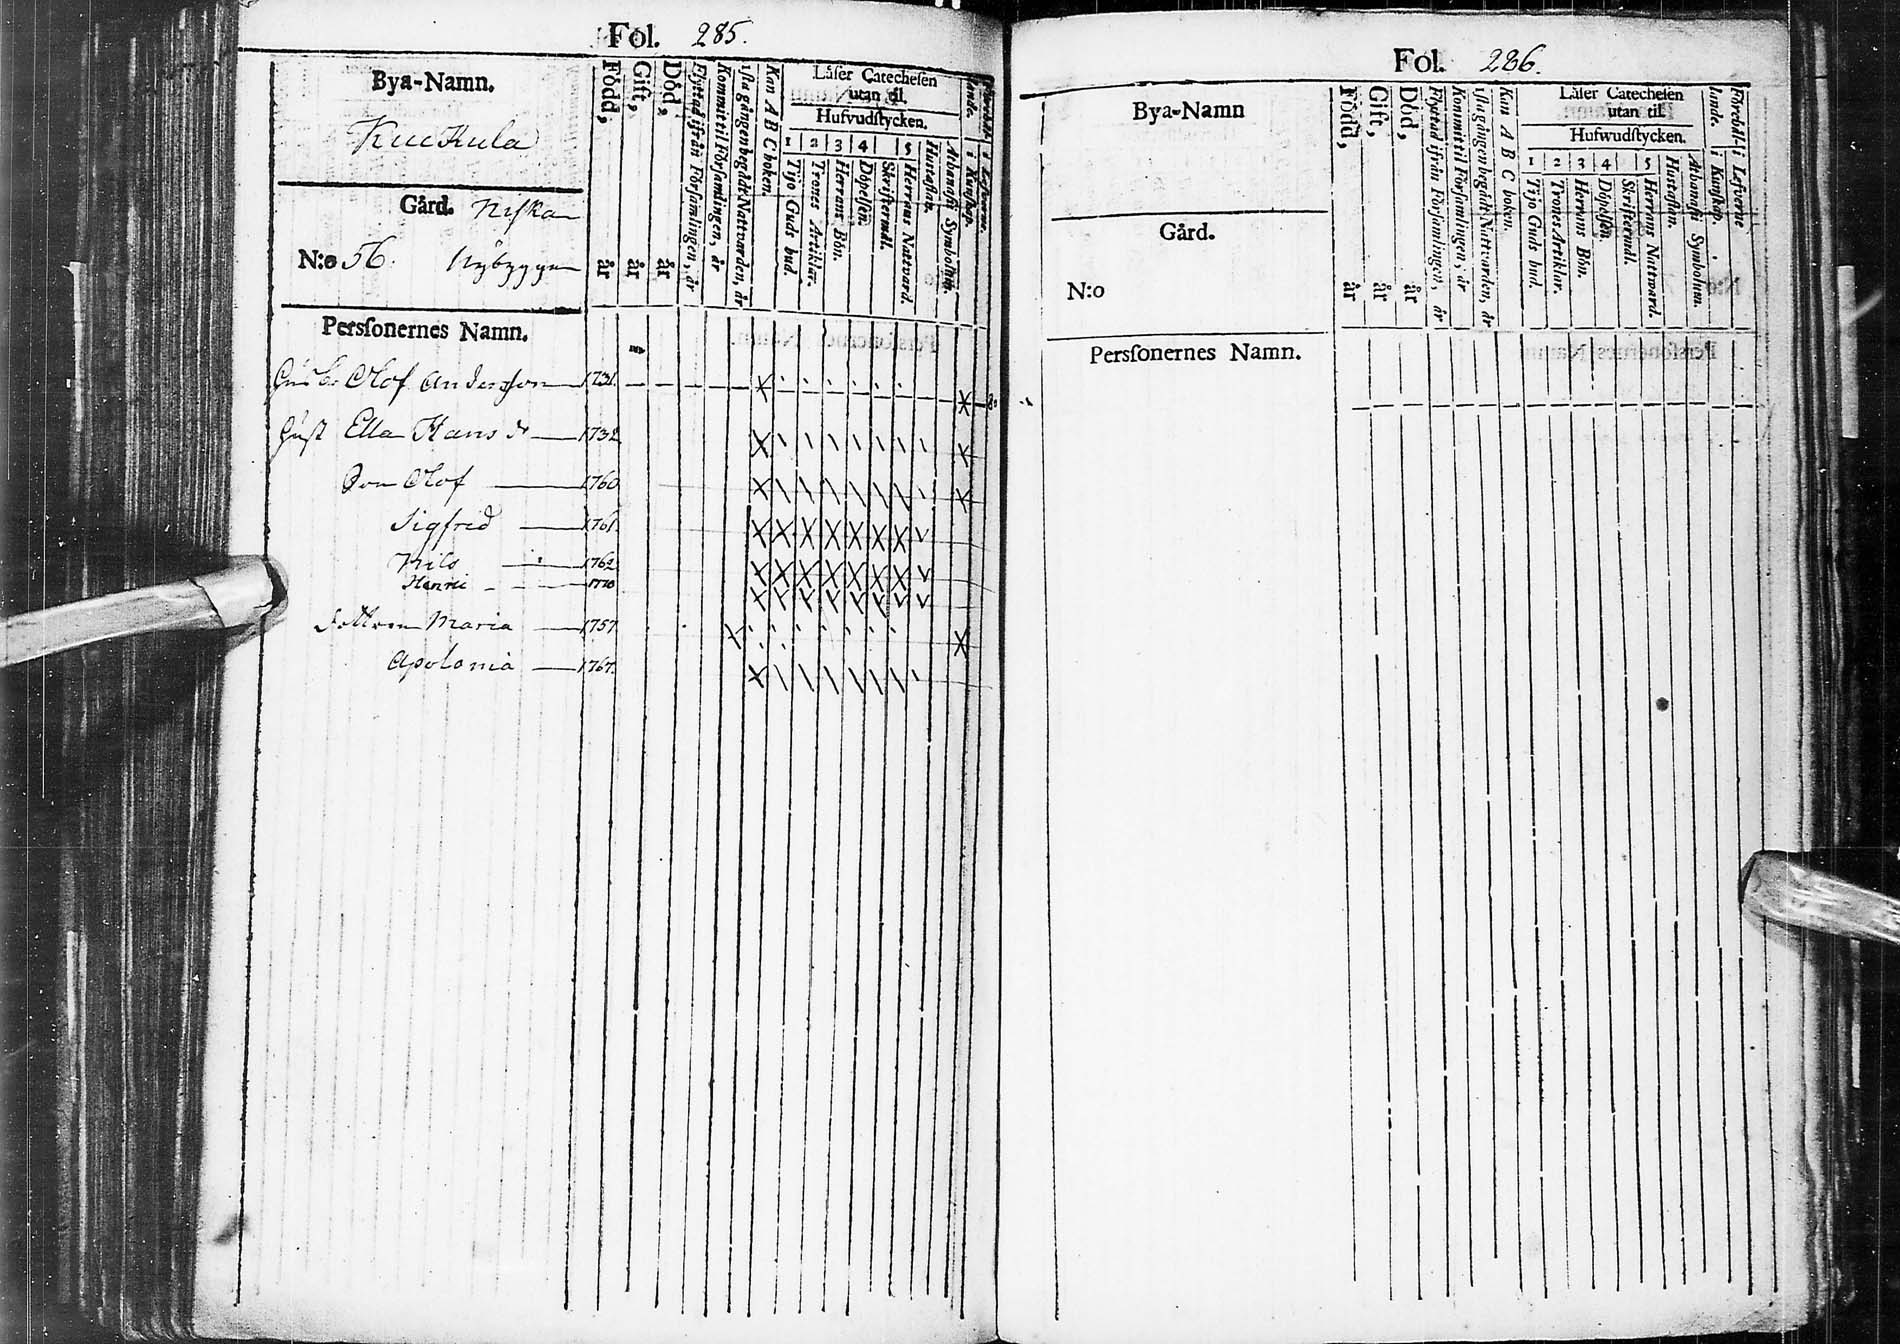 Fol. 285.
Bya-Namn.
Kuckula
Gård. Niska
N:o 56. Nybygge
Född, år
Gift, år
Död, år
Flyttad ifrån Församlingen, år
Kommit til Församlingen, år
1sta gången begådt Nattvarden, år
Kan A B C boken.
Läser Catechesen
utan til.
Hufvudstycken.
1 2 3 4 5
Tijo Guds bud.
Trones Artiklar.
Herrans Bön.
Döpelsen.
Skriftermål.
Herrans Nattvard.
Hustaflan.
Athanasii Symbolum.
Perssonernes Namn.
Olof Andersson 1731.
Ella Hans dr 1732
Son Olof 1760
Sigfrid 1761.
Nils 1762
Henric 1770
Maria 1757
Apolonia 1767.
Fol. 286.
Bya-Namn
Gård.
N:o
Född, år
Gift, år
Död, år
Flyttad ifrån Församlingen, år
Kommit til Församlingen, år
1sta gången begådt Nattvarden, år
Kan A B C boken.
Läser Catechesen
utan til.
Hufwudstycken.
1 2 3 4 5
Tijo Guds bud.
Trones Artiklar.
Herrans Bön.
Döpelsen.
Skriftermål.
Herrans Nattward.
Hustaflan.
Athanasii Symbolum.
i Kunskap.
i Lefverne
Perssonernes Namn.